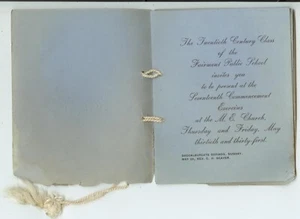 The Twentieth Century Class
of the
Fairmont Public School
invites you
to be present at the
Seventeenth Commencement
Exercises
at the M. E. Church,
Thursday and Friday, May
thirtieth and thirty-first.
BACCALAUREATE SERMON, SUNDAY,
MAY 26, REV. C. C.